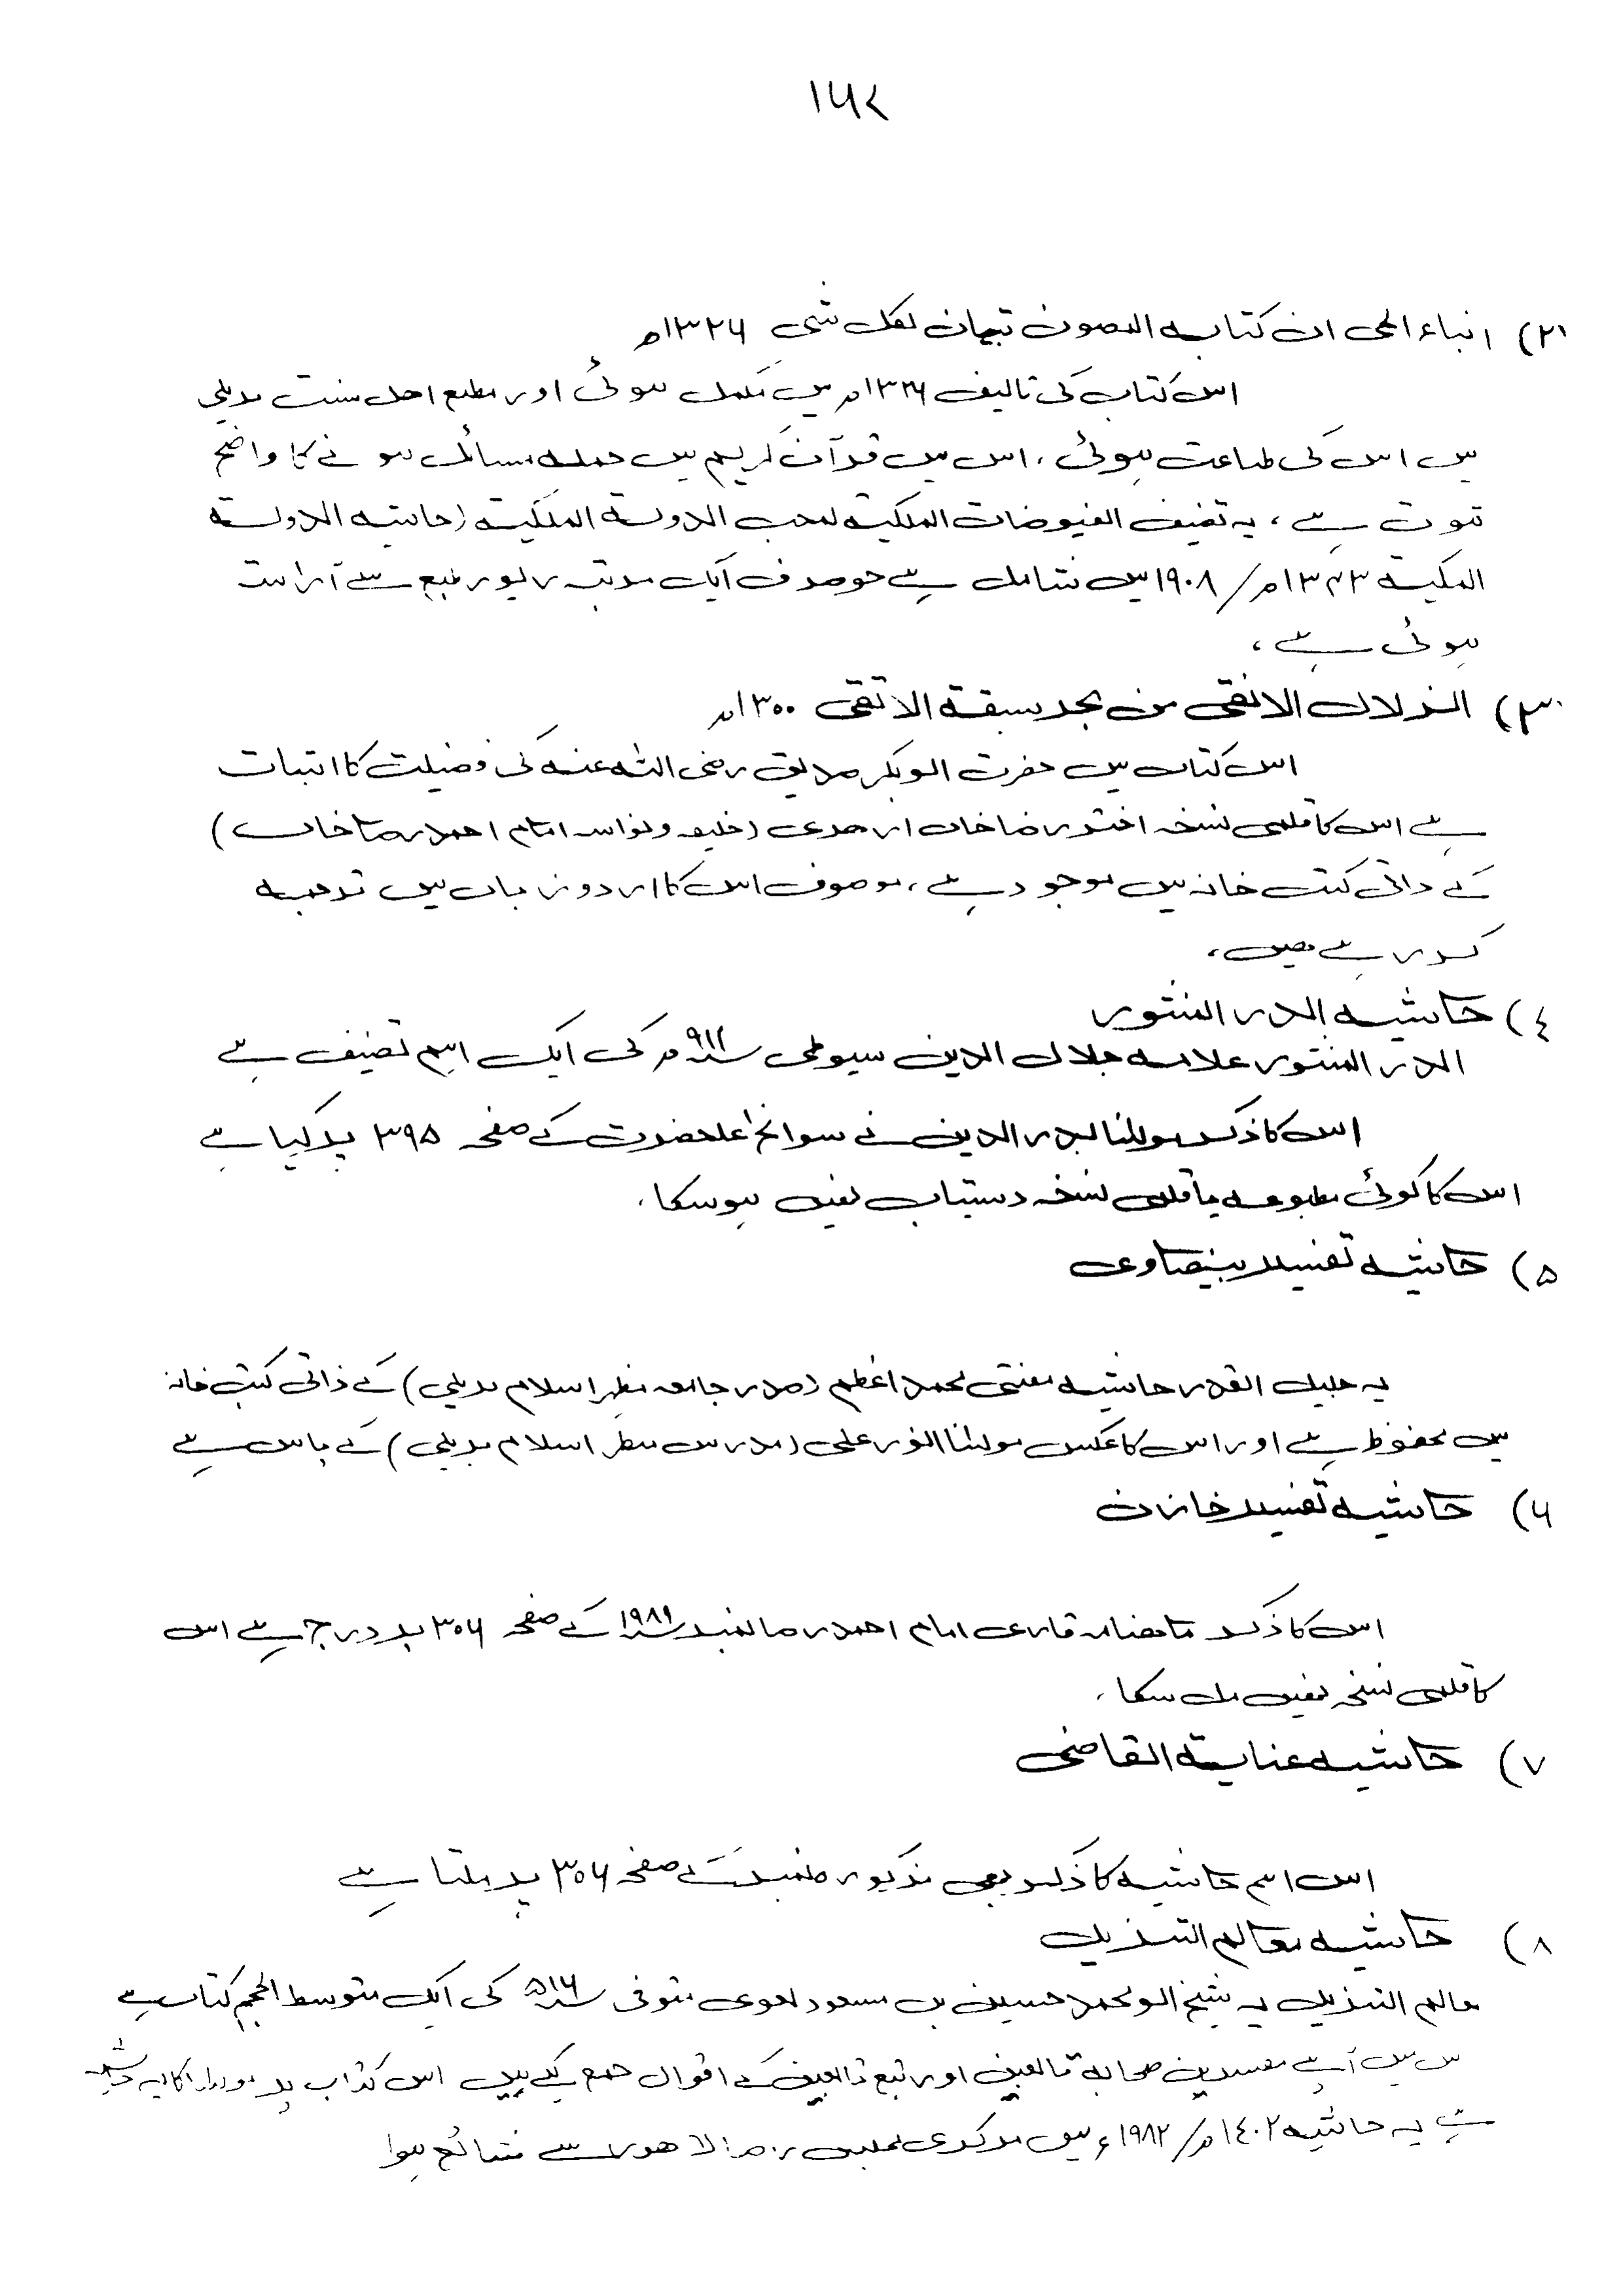 ۱۶۲
۲) انباء الحی ان کتابہ المصون تبیان لکل شی ۱۳۲۶ھ
اس کتاب کی تالیف ۱۳۲۶ھ میں مکمل ہوئی اور مطبع اھل سنت بریلی
میں اس کی طباعت ہوئی، اس میں قرآن کریم میں جملہ مسائل ہونے کا واضح
ثبوت ہے، یہ تصنیف الفیوضات الملکیۃ لمحب الدولۃ المکیۃ (حاشیہ الدولۃ
المکیۃ ۱۳۲۳ھ/۱۹۰۸ میں شامل ہے جو صرف ایک مرتبہ زیور طبع سے آراستہ
ہوئی ہے،
۳) الزلال الانقی من بحر سبقۃ الاتقی ۱۳۰۰ھ
اس کتاب میں حضرت ابوبکر صدیق رضی اللہ عنہ کی فضیلت کا اثبات
ہے اس کا قلمی نسخہ اختر رضا خاں ازھری (خلیفہ و نواسہ امام احمد رضا خاں)
کے ذاتی کتب خانہ میں موجود ہے، موصوف اس کا اردو زبان میں ترجمہ
کر رہے ھیں،
٤) حاشیہ الدر المنثور
الدر المنثور علامہ جلال الدین سیوطی سنہ ۹۱۱ھ کی ایک اہم تصنیف ہے
اس کا ذکر مولٰنا بدر الدین نے سوانح اعلحضرت کے صفحہ ۳۹۵ پر کیا ہے
اس کا کوئی مطبوعہ یا قلمی نسخہ دستیاب نھیں ہوسکا،
۵) حاشیہ تفسیر بیضاوی
یہ جلیل القدر حاشیہ مفتی محمد اعظم (صدر جامعہ مظہر اسلام بریلی) کے ذاتی کتب خانہ
میں محفوظ ہے اور اس کا عکس مولٰنا انور علی (مدرس منظر اسلام بریلی) کے پاس ہے
۶) حاشیہ تفسیر خازن
اس کا ذکر ماھنامہ قاری امام احمد رضا نمبر سنہ ۱۹۸۹ کے صفحہ ۳۰۶ پر درج ہے اس
کا قلمی نسخہ نھیں مل سکا،
۷) حاشیہ عنایۃ القاضی
اس اہم حاشیہ کا ذکر بھی مذکورہ نمبر کے صفحہ ۳۰۶ پر ملتا ہے
۸) حاشیہ معالم التنزیل
معالم التنزیل یہ شیخ ابو محمد حسین بن مسعود بغوی متوفی سنہ ۵۱۶ کی ایک متوسط الحجم کتاب ہے
س میں آپ نے مفسرین صحابہ تابعین اور تبع تابعین کے اقوال جمع کیے ہیں اس کتاب پر مولانا کا یہ حاشیہ
ہے یہ حاشیہ ۱٤۰۲ھ/۱۹۸۲ء میں مرکزی مجلس رضا لاھور سے شائع ہوا